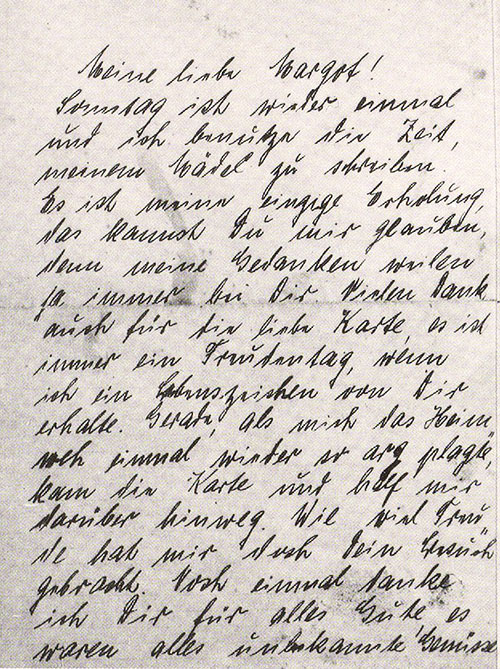 Meine liebe Margot!
Sonntag ist wieder einmal
und ich benutze die Zeit,
meinem Mädel zu schreiben.
Es ist meine einzige Erholung,
das kannst Du mir glauben,
denn meine Gedanken weilen
ja immer bei Dir. Vielen Dank
auch für die liebe Karte, es ist
immer ein Freudentag, wenn
ich ein Lebenszeichen von Dir
erhalte. Gerade, als mich das Heim-
weh einmal wieder so arg plagte,
kam die Karte und half mir
darüber hinweg. Wie viel Freu-
de hat mir doch Dein Besuch
gebracht. Noch einmal danke
ich Dir für alles Gute, es
waren alles unbekannte Genüsse